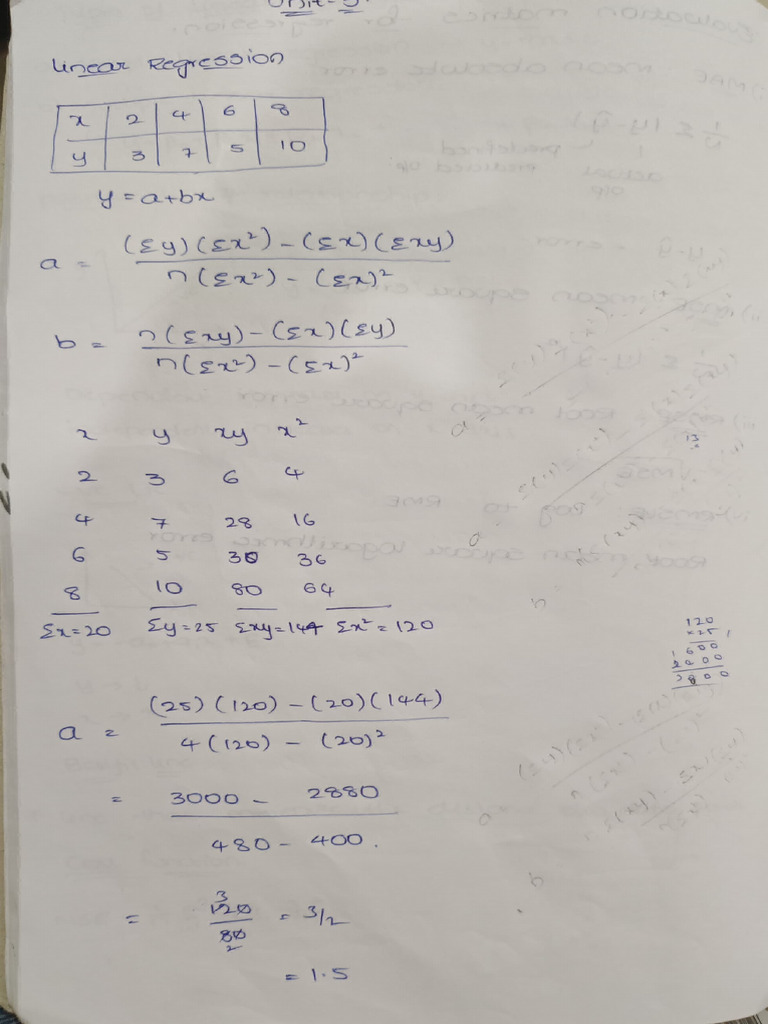 Unit-3.
Linear Regression
x 2 4 6 8
y 3 7 5 10
y = a+bx
a = (Σy)(Σx²) - (Σx)(Σxy) / n(Σx²) - (Σx)²
b = n(Σxy) - (Σx)(Σy) / n(Σx²) - (Σx)²
x y xy x²
2 3 6 4
4 7 28 16
6 5 30 36
8 10 80 64
Σx=20 Σy=25 Σxy=144 Σx²=120
120
×25
600
a = (25)(120) - (20)(144) / 4(120) - (20)²
= 3000 - 2880 / 480 - 400.
= 120/80 = 3/2
3
2
= 1.5